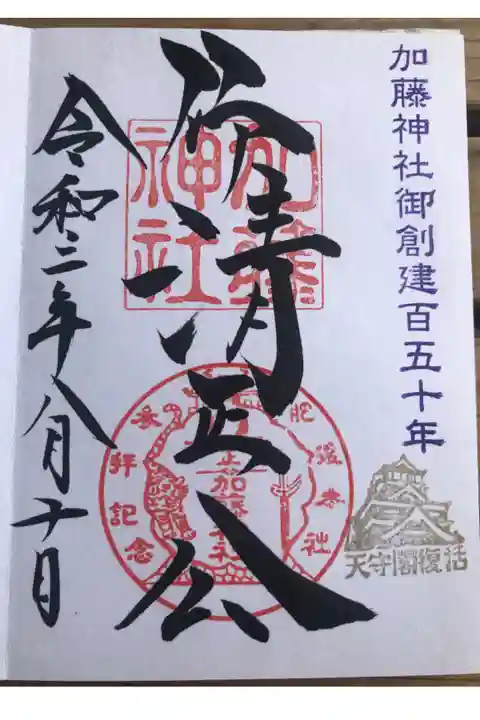 加藤神社御創建百五十年
天守閣復活
祈清正公
加藤
神社
肥後本社
参拝記念
令和三年八月十日